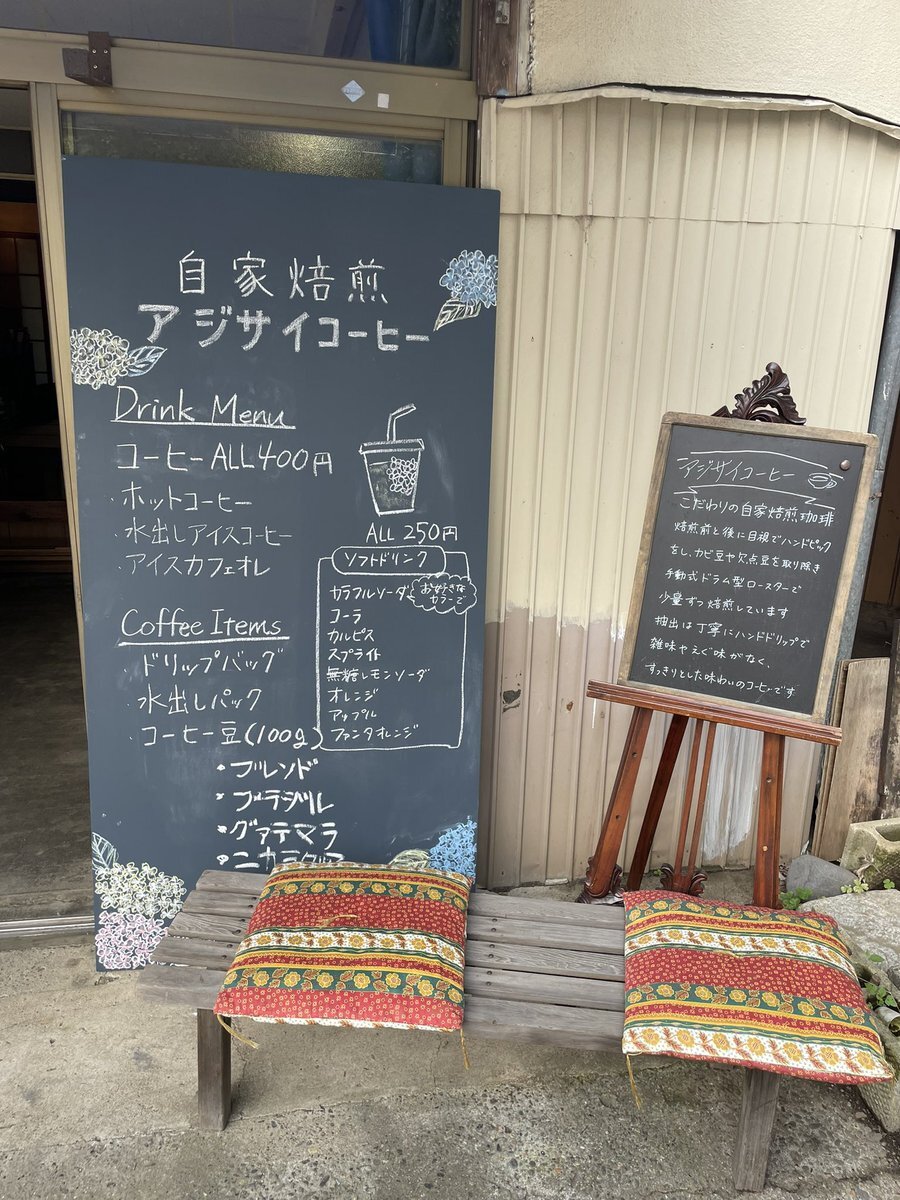 自家焙煎
アジサイコーヒー
Drink Menu
コーヒーALL400円
・ホットコーヒー
・水出しアイスコーヒー
・アイスカフェオレ
Coffee Items
・ドリップバッグ
・水出しパック
・コーヒー豆(100g)
・ブレンド
・ブラジル
・グァテマラ
・ニカラグア
ALL 250円
ソフトドリンク
カラフルソーダ
お好きな
カラーで
コーラ
カルピス
スプライト
無糖レモンソーダ
オレンジ
アップル
ファンタオレンジ
アジサイコーヒー
こだわりの自家焙煎珈琲
焙煎前と後に目視でハンドピック
をし、カビ豆や欠点豆を取り除き
手動式ドラム型ロースターで
少量ずつ焙煎しています
抽出は丁寧にハンドドリップで
雑味やえぐ味がなく、
すっきりとした味わいのコーヒーです